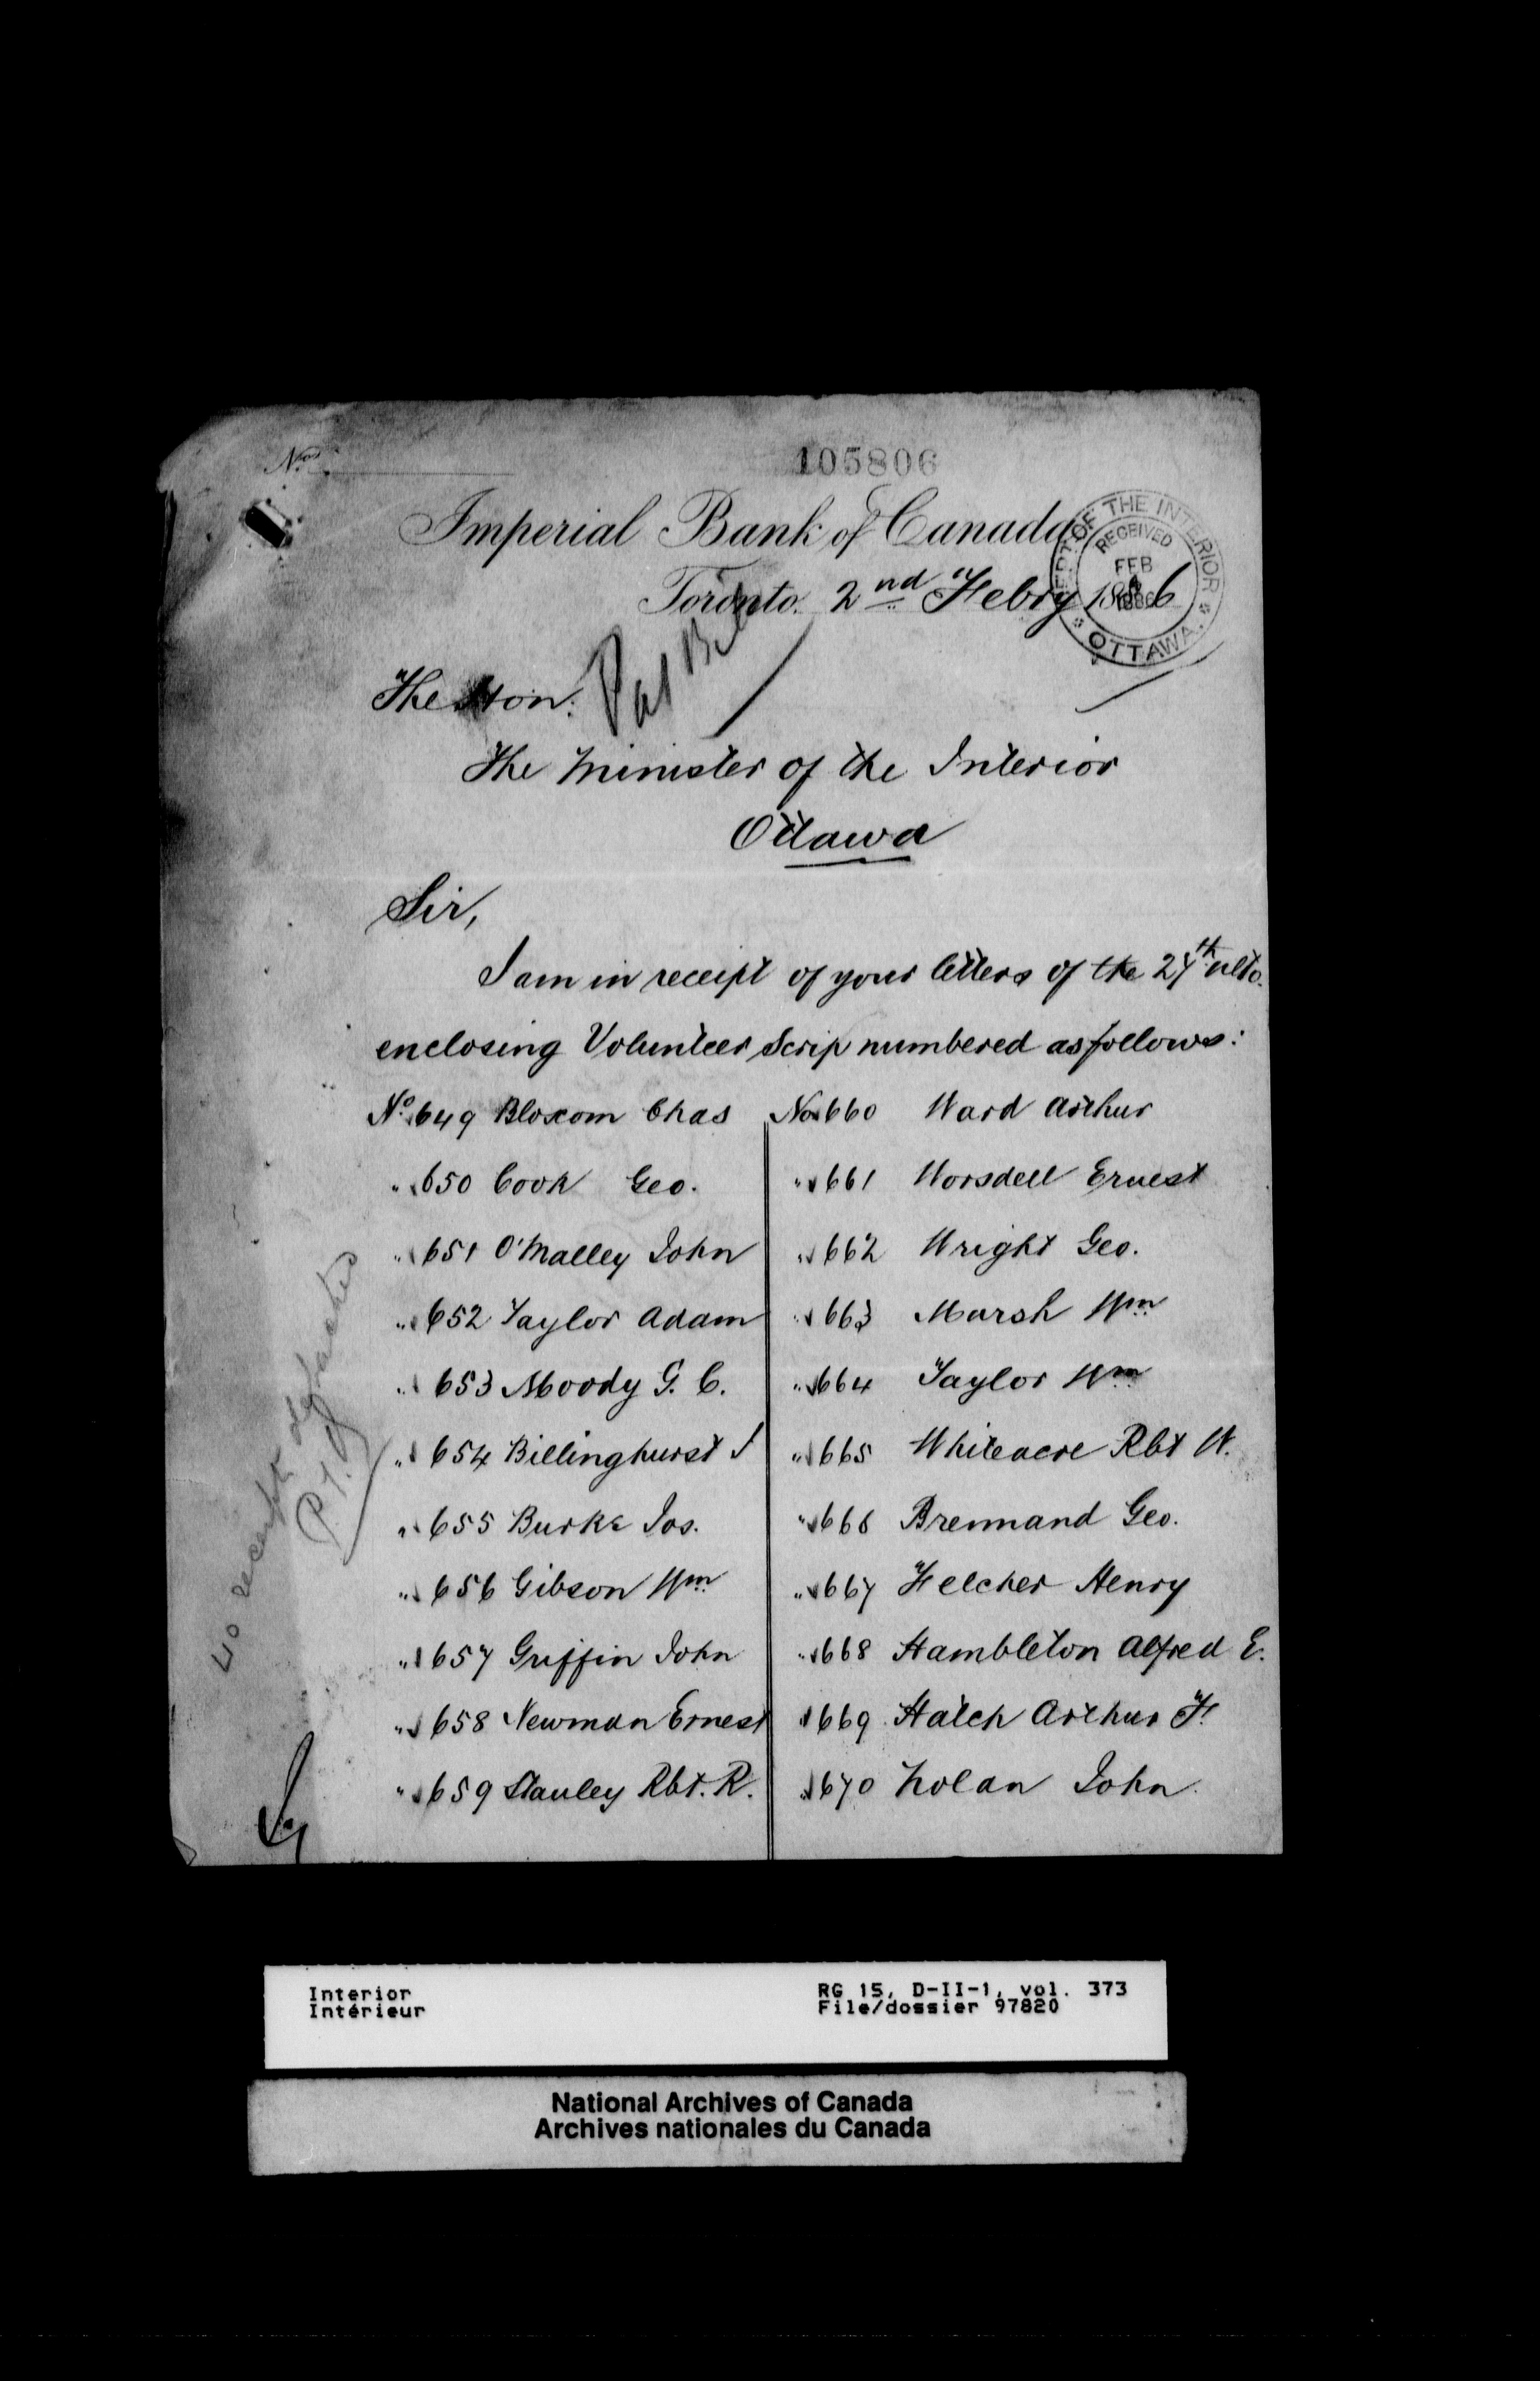 Nos
105806
Imperial Bank of Canada
DEPT. OF THE INTERIOR
RECEIVED
FEB
4
1886
OTTAWA.
Toronto. 2nd Febry 1886
The Hon:
The Minister of the Interior
Ottawa
Sir,
I am in receipt of your letters of the 27th ulto.
enclosing Volunteer Scrip numbered as follows:
No. 649 Bloxom Chas
" 650 Cook Geo.
" 651 O'Malley John
" 652 Taylor Adam
" 653 Moody G. C.
" 654 Billinghurst J
" 655 Burke Jos.
" 656 Gibson Wm
" 657 Griffin John
" 658 Newman Ernest
" 659 Stanley Rbt. R.
No 660 Ward Arthur
" 661 Worsdell Ernest
" 662 Wright Geo.
" 663 Marsh Wm
" 664 Taylor Wm
" 665 Whiteacre Rbt W.
" 666 Brennand Geo.
" 667 Felcher Henry
" 668 Hambleton Alfred E.
669 Hatch Arthur F.
" 670 Nolan John.
40 receipts
Interior
Intérieur
RG 15, D-II-1, vol. 373
File/dossier 97820
National Archives of Canada
Archives nationales du Canada